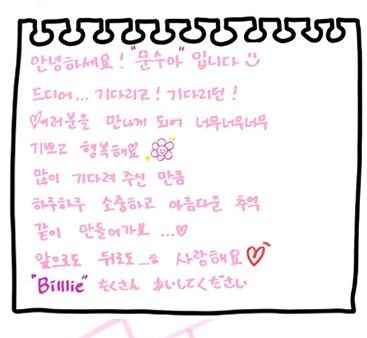 안녕하세요! "문수아" 입니다
드디어... 기다리고! 기다리던!
♡여러분을 만나게 되어 너무너무너무
기쁘고 행복해요♡
많이 기다려 주신 만큼
하루하루 소중하고 아름다운 추억
같이 만들어가보 ...♡
앞으로도 뒤로도...ㅎ 사랑해요♡
"Billlie" たくさん あいしてください